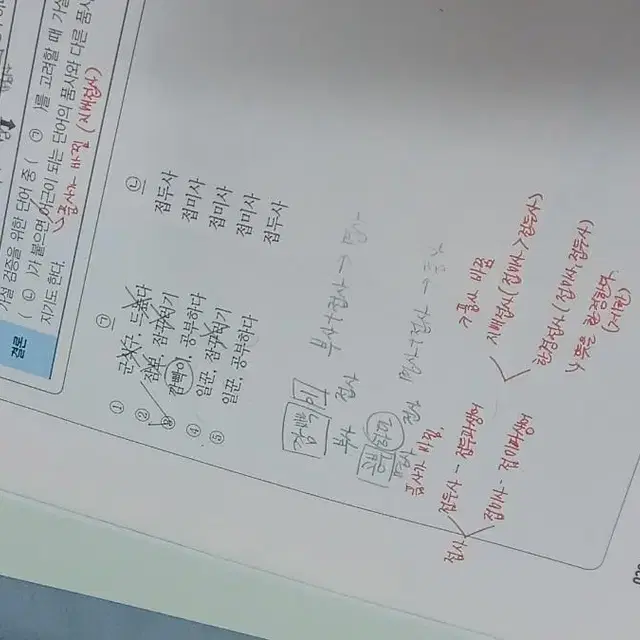 가설 검증을 위한 단어 중 ( ㉠ )를 고려할 때 가설
결론
( ㉡ )가 붙으면 어근이 되는 단어의 품사와 다른 품사
지기도 한다.
품사가 바뀜 (지배접사)
㉠ ㉡
① 군식구, 드높다 접두사
② 잠보, 잠꾸러기 접미사
③ 깜빡이, 공부하다 접미사
④ 일꾼, 잠꾸러기 접미사
⑤ 일꾼, 공부하다 접두사
깜빡 이 부사+접사 → 명사
부사 접사
공부 하다 명사+접사 → 동사
명사 접사
품사가 바뀜.
접사 접두사 - 접두파생어
접미사 - 접미파생어
품사 바꿈
지배접사 (접미사 > 접두사)
한정접사 (접미사, 접두사)
뜻을 한정한다.
(제한)